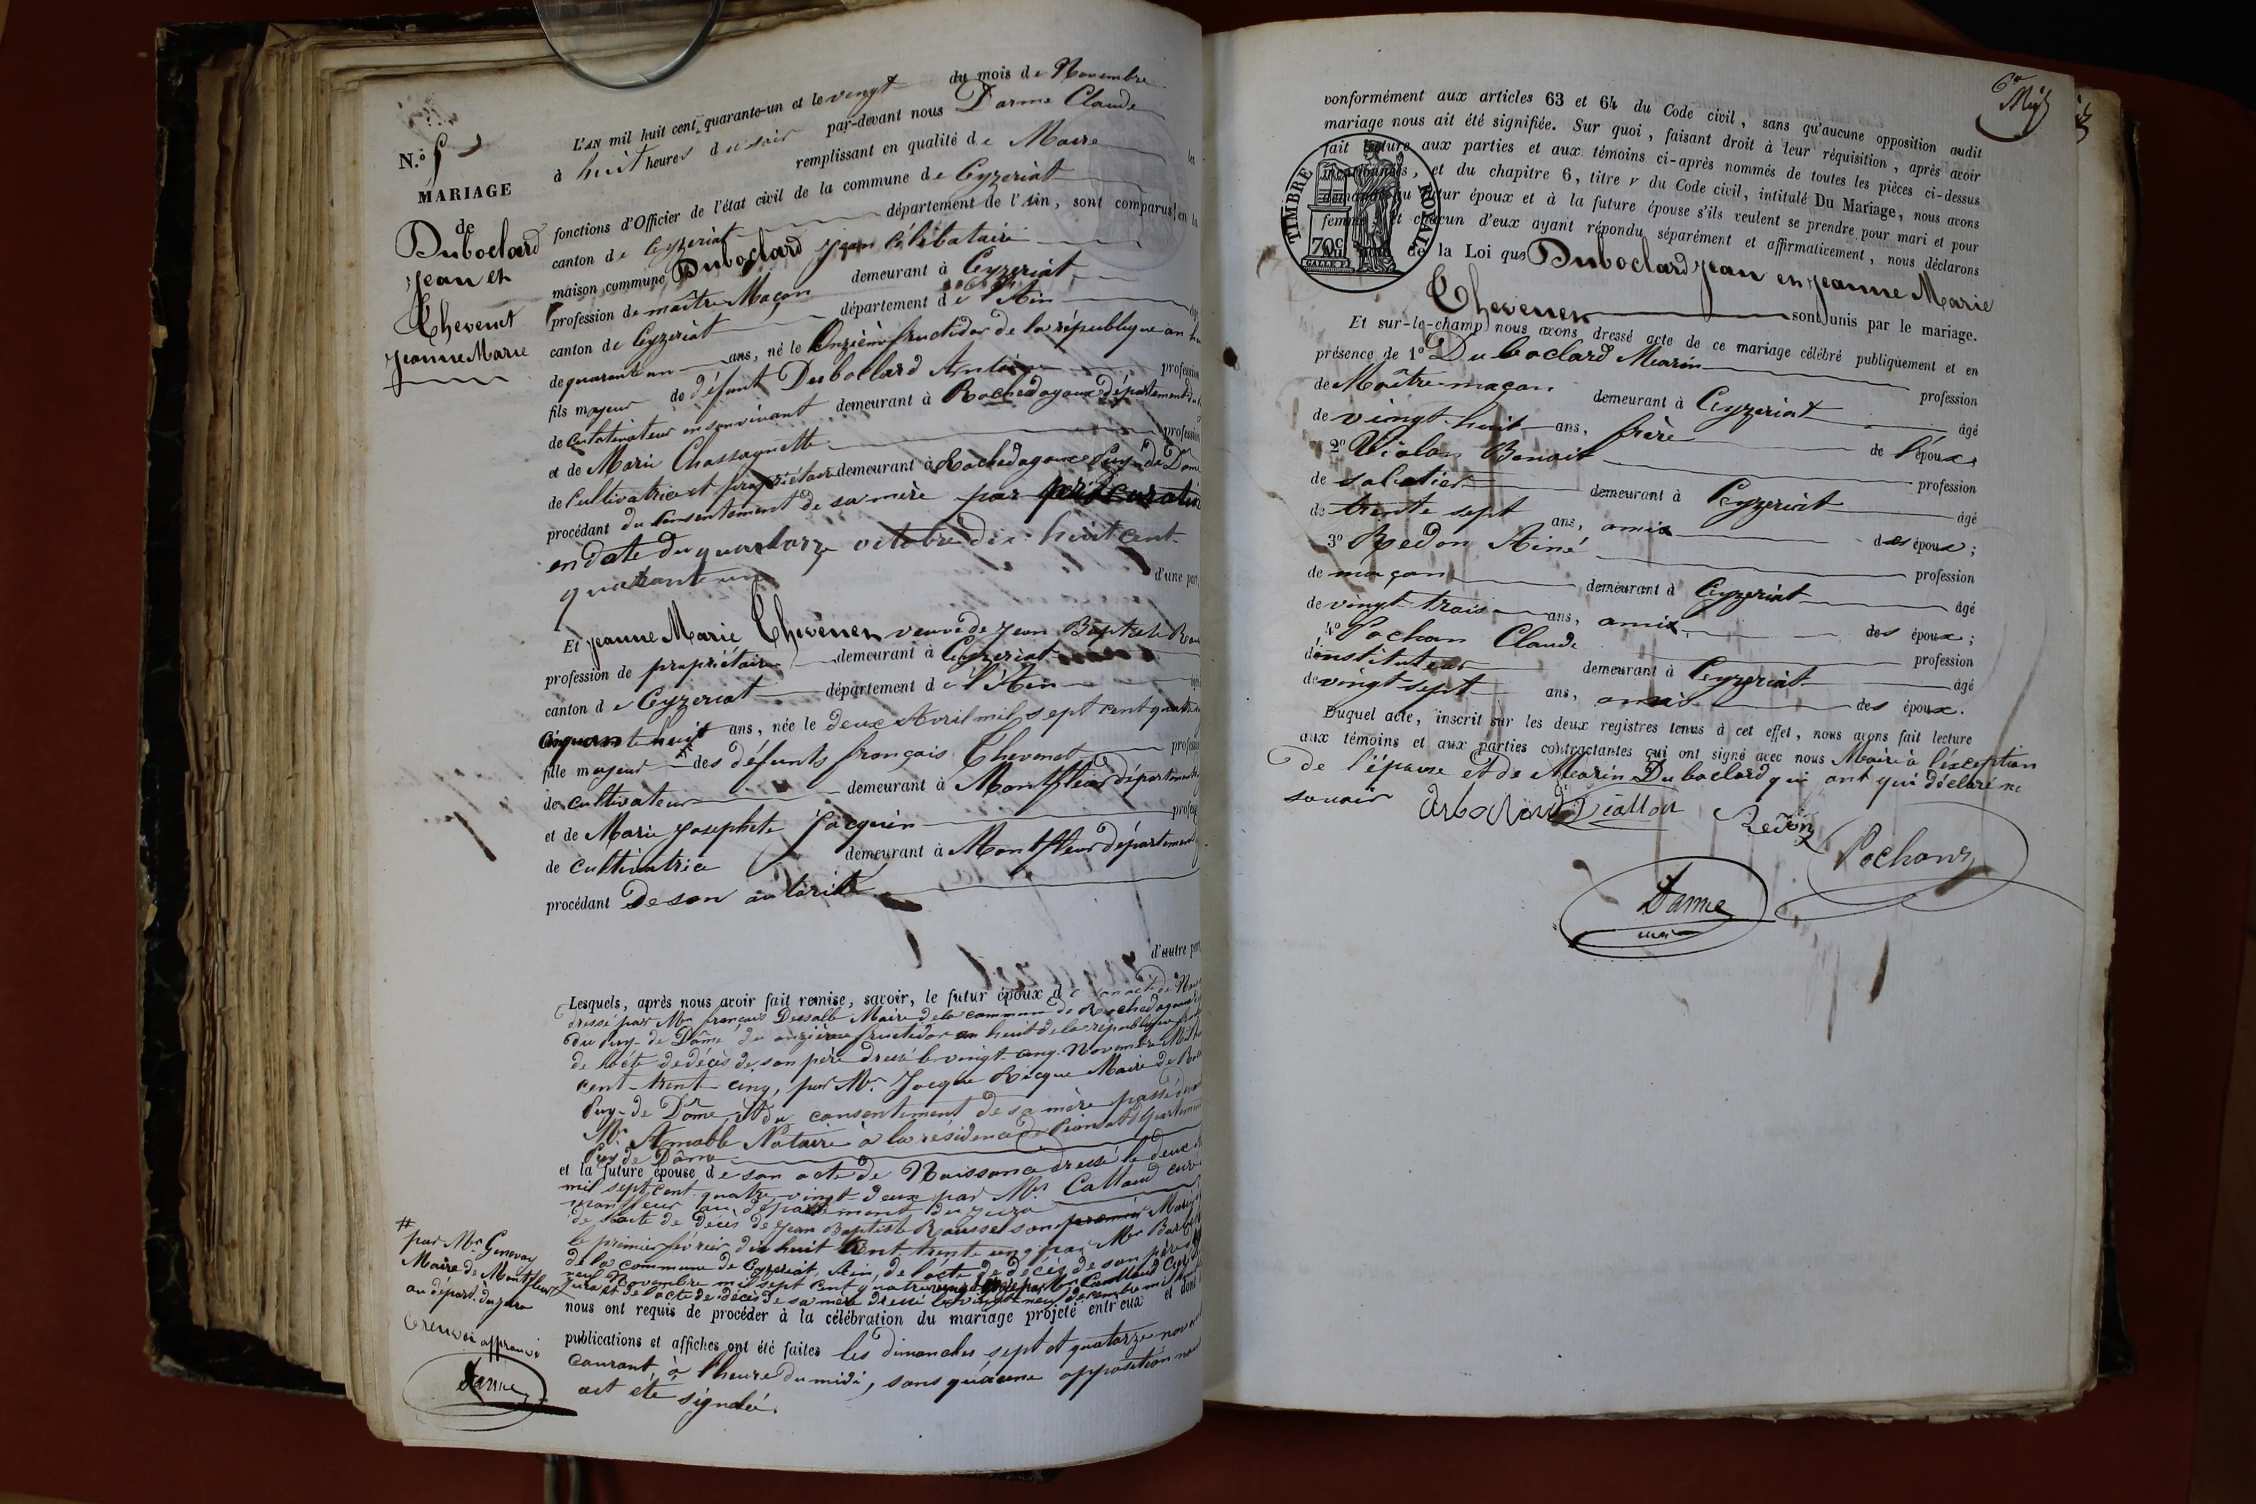 N.º 5
MARIAGE
de
Duboclard
Jean et
Thevenet
Jeanne Marie
L'AN mil huit cent quarante-un et le vingt du mois de Novembre
à huit heures du soir par-devant nous Darme Claude
remplissant en qualité de Maire les
fonctions d'Officier de l'état civil de la commune de Ceyzeriat
canton de Ceyzeriat département de l'Ain, sont comparus en la
maison commune Duboclard Jean célibataire
profession de maître Maçon demeurant à Ceyzeriat
canton de Ceyzeriat département de l'Ain
de quarante un ans, né le Onzième fructidor de la république an hu
fils majeur de défunt Duboclard Antoine profession
de Cultivateur en son vivant demeurant à Rochedagoux département du
et de Marie Chassagnette profession
de Cultivatrice et propriétaire demeurant à Rochedagoux Puy-de Dôme
procédant du Consentement de sa mère par procuration
en date du quatorze octobre dix-huit cent-
quarante un
d'une part,
Et Jeanne Marie Thevenet veuve de Jean Baptiste Rou
profession de propriétaire demeurant à Ceyzeriat
canton de Ceyzeriat département de l'Ain
cinquante huit ans, née le deux Avril mil sept cent quatre
fille majeur des défunts français Thevenet profession
de cultivateur demeurant à Montfleur département
et de Marie Josephete Jacquin profes
de cultivatrice demeurant à Montfleur département
procédant De son autorité
d'autre part
Lesquels, après nous avoir fait remise, savoir, le futur époux de son acte de Nais
dressé par Mr français Dessalle Maire de la commune de Rochedagoux
du Puy-de Dôme du onzième fructidor an huit de la république
de l'acte de décès de son père dressé le vingt cinq Novembre Mil
cent-trente-cinq, par Mr. Jacque Ricque Maire de R
Puy-de Dôme, et du consentement de sa mère passé devant
Mr. Amable Notaire à la résidence de Pionsat département
Puy de Dôme
et la future épouse de son acte de Naissance dressé le deux
mil sept cent quatre-vingt-deux par Mr Calland curé
montfleur au département du jura
de l'acte de Décès de Jean Baptiste Rousset son premier Mari
le premier février dix huit cent trente cinq par Mr Barb
de la commune de Ceyzeriat, Ain, de l'acte de décès de son père
neuf Novembre mil sept cent quatre vingt par Mr Calland Curé
jura et de l'acte de décès de sa mère dressé le vingt neuf décembre mil
nous ont requis de procéder à la célébration du mariage projeté entr'eux et dont
publications et affiches ont été faites les dimanches sept et quatorze novem
courant, à l'heure du midi, sans qu'aucune opposition nous
ait été signalé.
#
par Mr Genevay
Maire de Montfleur
au départ. du jura
renvoi approuvé
Darme
6e
conformément aux articles 63 et 64 du Code civil, sans qu'aucune opposition audit
mariage nous ait été signifiée. Sur quoi, faisant droit à leur réquisition, après avoir
fait lecture aux parties et aux témoins ci-après nommés de toutes les pièces ci-dessus
mentionnées, et du chapitre 6, titre v du Code civil, intitulé Du Mariage, nous avons
demandé au futur époux et à la future épouse s'ils veulent se prendre pour mari et pour
femme, et chacun d'eux ayant répondu séparément et affirmativement, nous déclarons
au nom de la Loi que Duboclard Jean et Jeanne Marie
TIMBRE ROYAL
70c
Thevenet sont unis par le mariage.
Et sur-le-champ nous avons dressé acte de ce mariage célébré publiquement et en
présence de 1º Duboclard Marin profession
de Maître maçon demeurant à Ceyzeriat âgé
de vingt-huit ans, frère de l'époux
2º Vialon Benoit profession
de sabotier demeurant à Ceyzeriat âgé
de trente sept ans, amis des époux;
3º Redon Aîné profession
de maçon demeurant à Ceyzeriat âgé
de vingt-trois ans, amis des époux;
4º Pochon Claude profession
d'instituteur demeurant à Ceyzeriat âgé
de vingt-sept ans, amis des époux.
Duquel acte, inscrit sur les deux registres tenus à cet effet, nous avons fait lecture
aux témoins et aux parties contractantes qui ont signé avec nous Maire à l'exception
de l'épouse et de Marin Duboclard qui ont qui déclaré ne
savoir
duboclard Viallon Redon
Pochon
Darme
mai